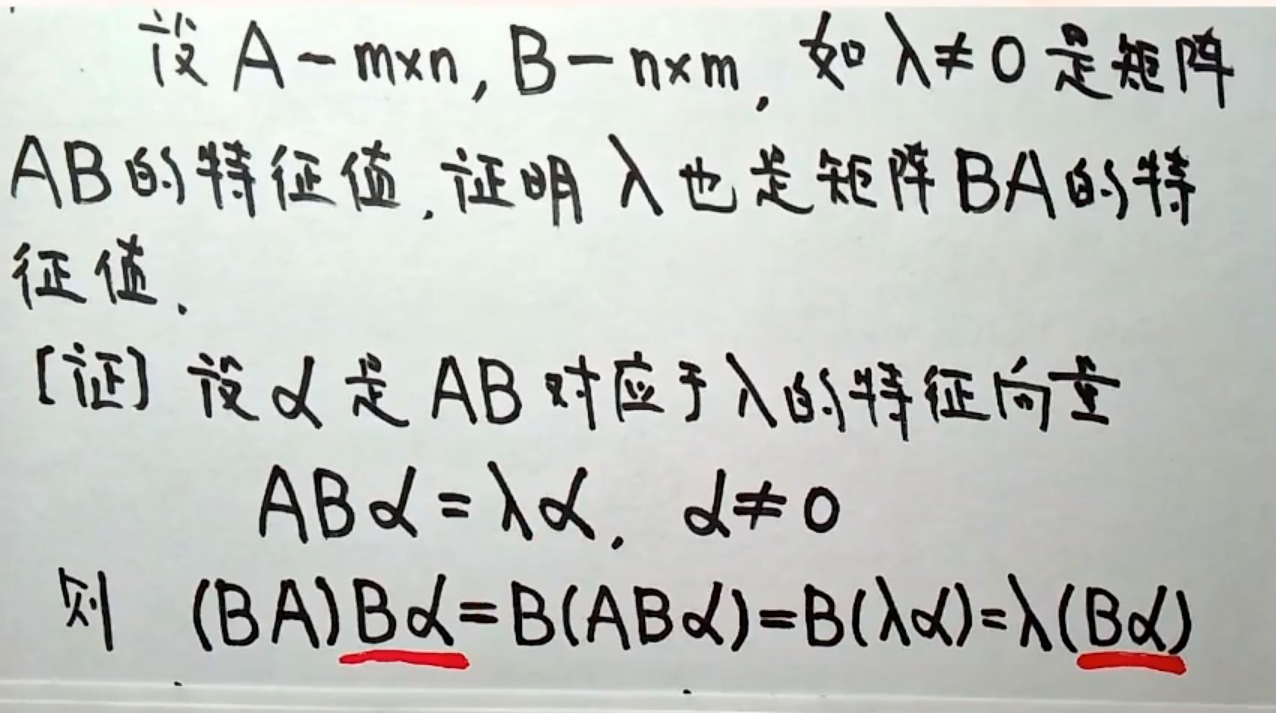 设 A - m×n, B - n×m, 如 λ≠0 是矩阵
AB的特征值, 证明 λ 也是矩阵BA的特
征值.
[证] 设 α 是 AB 对应于 λ 的特征向量
ABα = λα, α≠0
则 (BA)Bα=B(ABα)=B(λα)=λ(Bα)